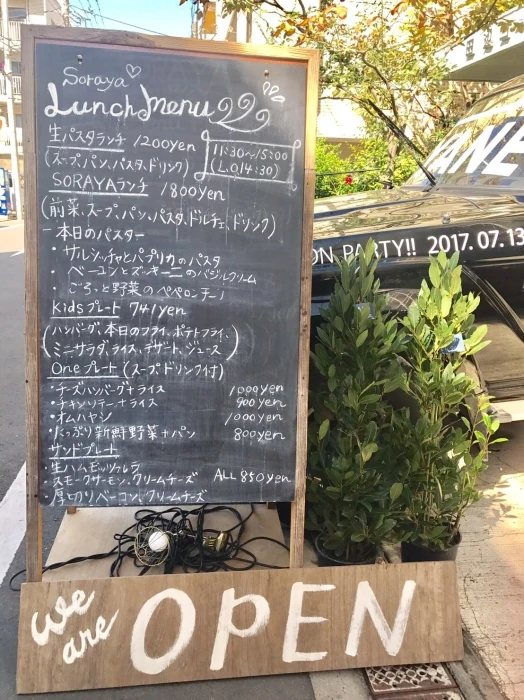 Soraya♡
Lunch Menu
生パスタランチ 1200yen
(スープ、パン、パスタ、ドリンク)
11:30~15:00
(L.O 14:30)
SORAYAランチ 1800yen
(前菜、スープ、パン、パスタ、ドルチェ、ドリンク)
ー本日のパスター
・サルシッチャとパプリカのパスタ
・ベーコンとズッキーニのバジルクリーム
・ごろっと野菜のペペロンチーノ
Kidsプレート 741yen
(ハンバーグ、本日のフライ、ポテトフライ、
ミニサラダ、ライス、デザート、ジュース)
Oneプレート (スープ、ドリンク付)
・チーズハンバーグ+ライス 1000yen
・チキンソテー+ライス 900yen
・オムハヤシ 1000yen
・たっぷり新鮮野菜+パン 800yen
サンドプレート
・生ハムモッツァレラ
・スモークサーモン、クリームチーズ ALL 850yen
・厚切りベーコン、クリームチーズ
We are OPEN
ANE
ON PARTY!! 2017.07.13